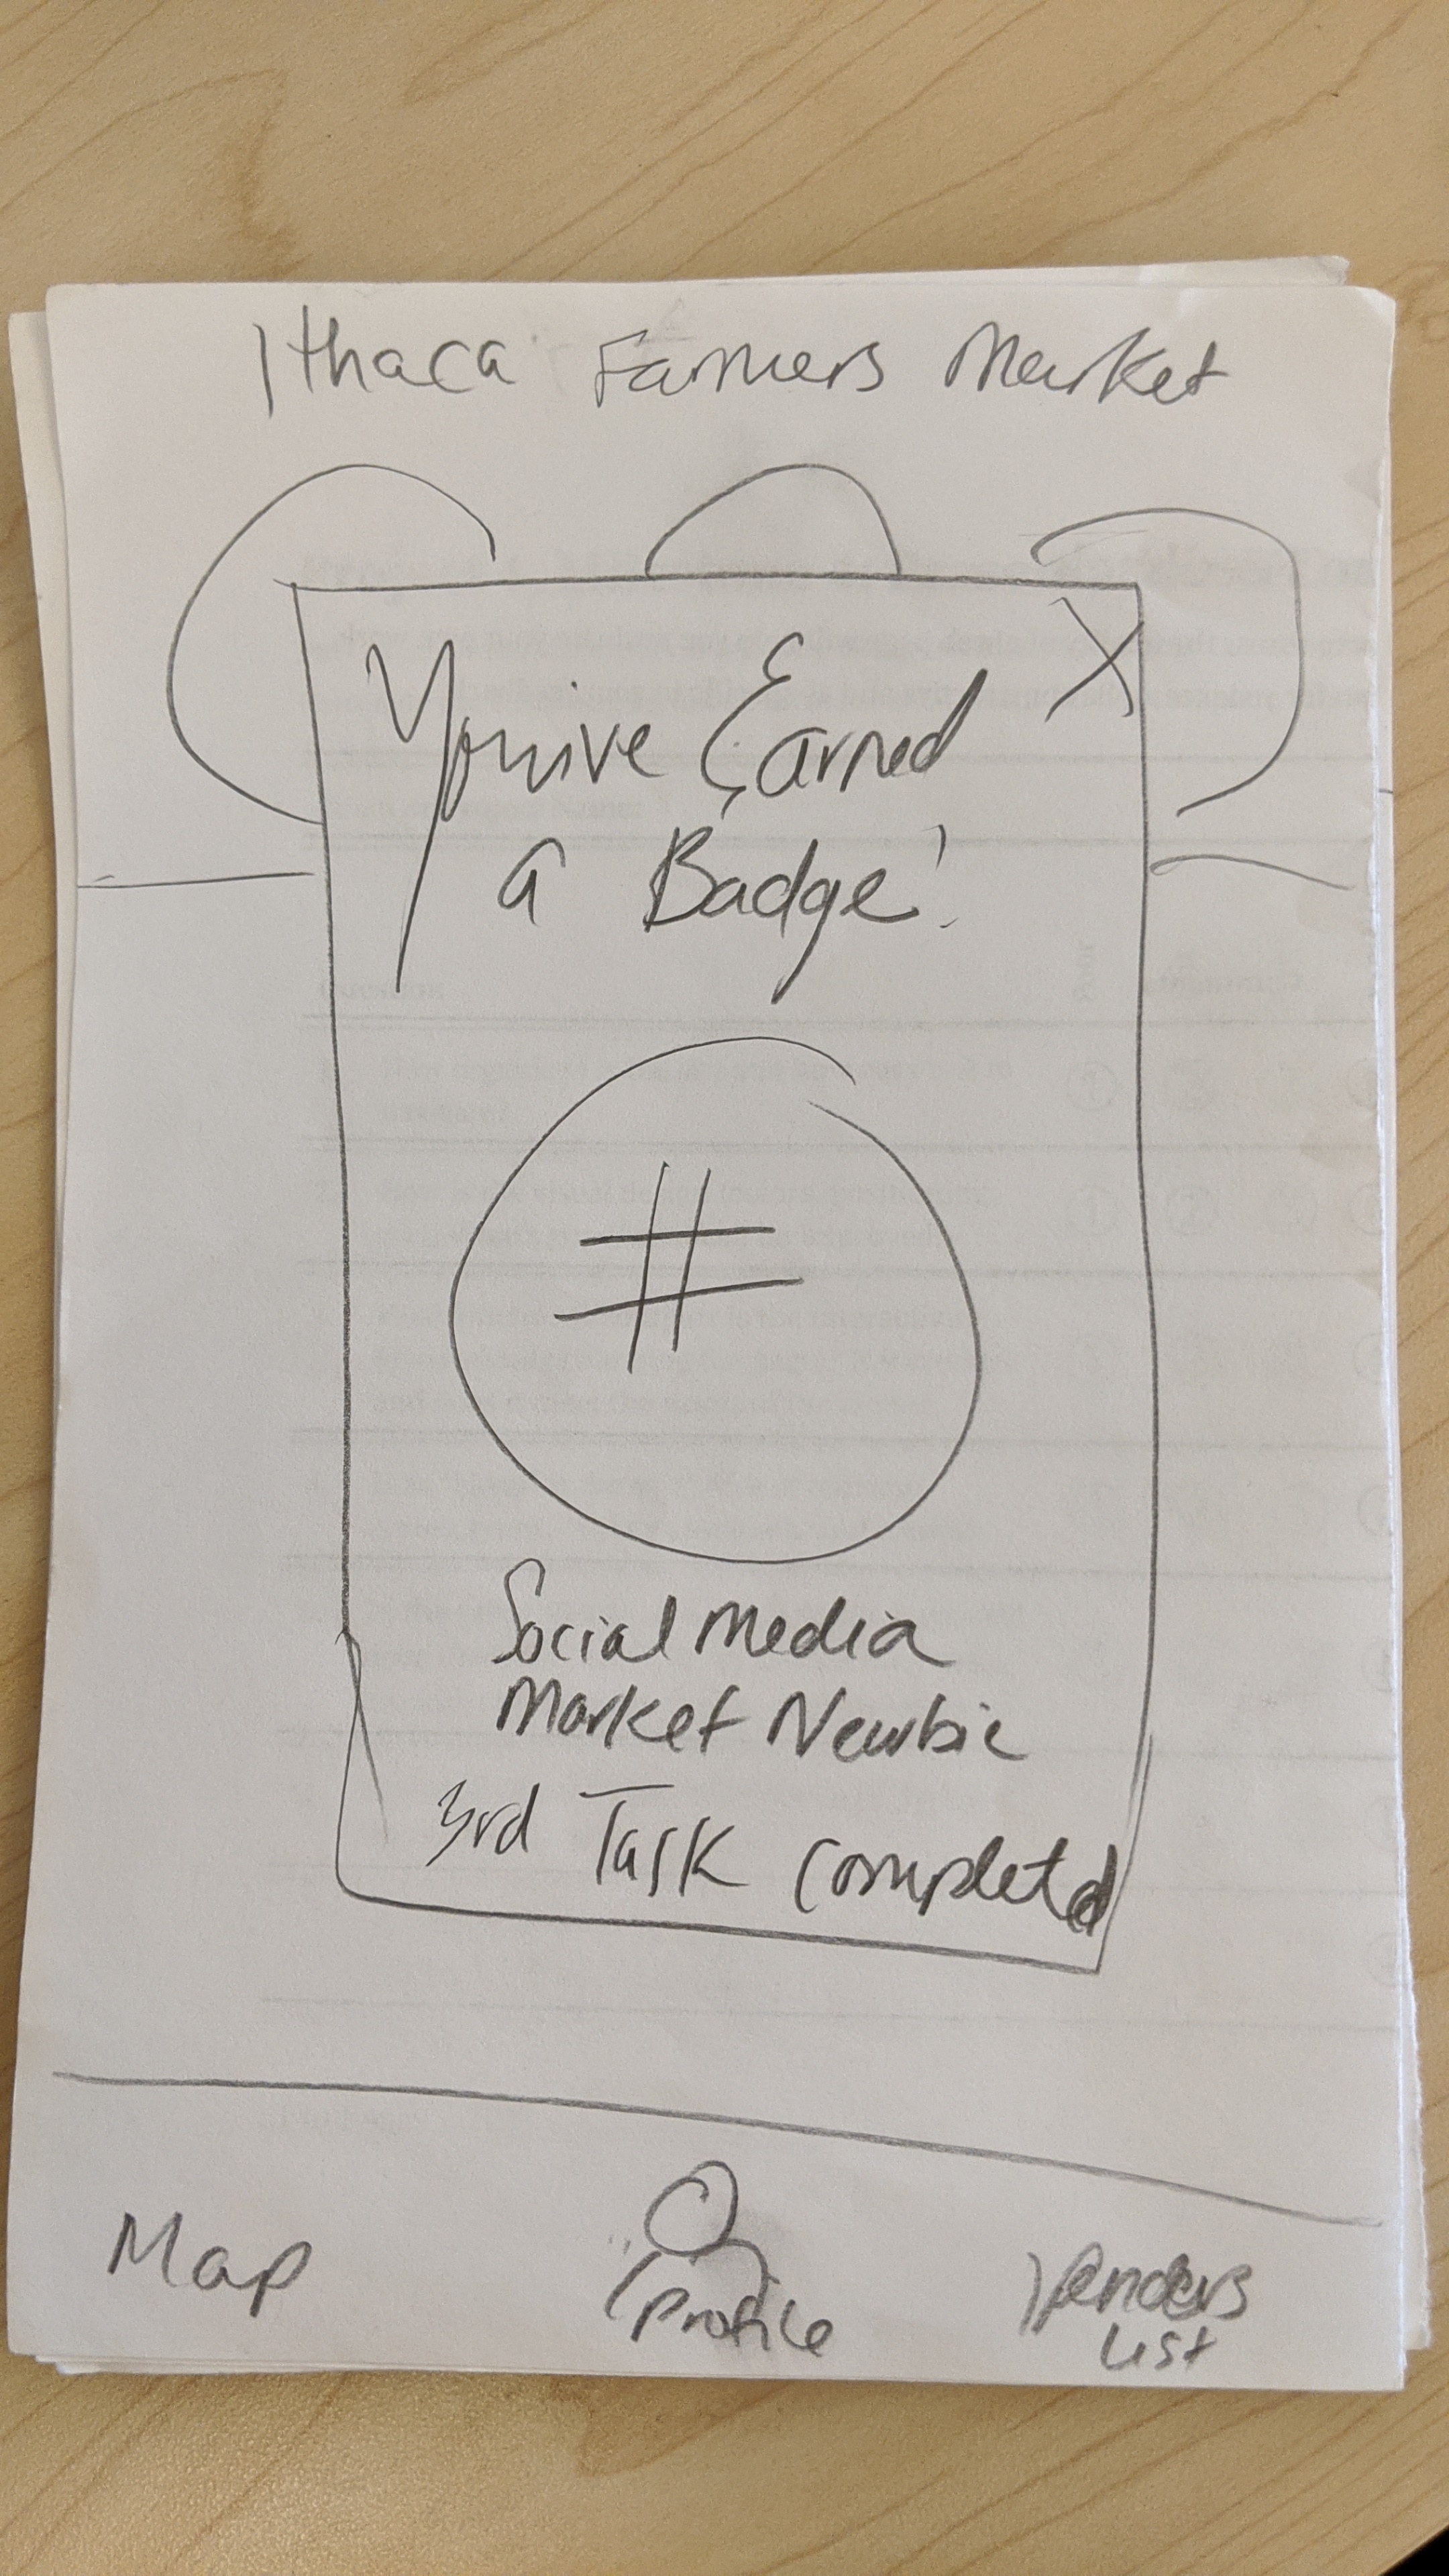 Ithaca Farmers Market
X
You've Earned
a Badge!
#
Social Media
Market Newbie
3rd Task Completed
Map
Profile
Venders
List